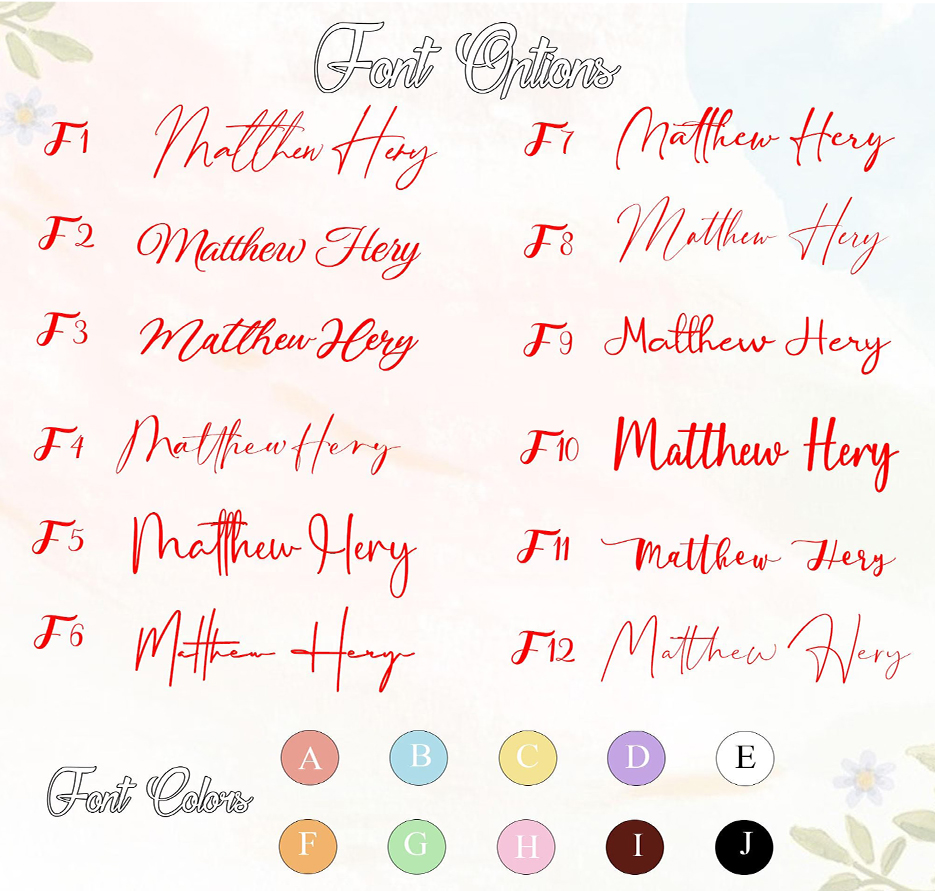 Font Options
F1 Matthew Hery
F2 Matthew Hery
F3 Matthew Hery
F4 Matthew Hery
F5 Matthew Hery
F6 Matthew Hery
F7 Matthew Hery
F8 Matthew Hery
F9 Matthew Hery
F10 Matthew Hery
F11 Matthew Hery
F12 Matthew Hery
Font Colors
A B C D E
F G H I J